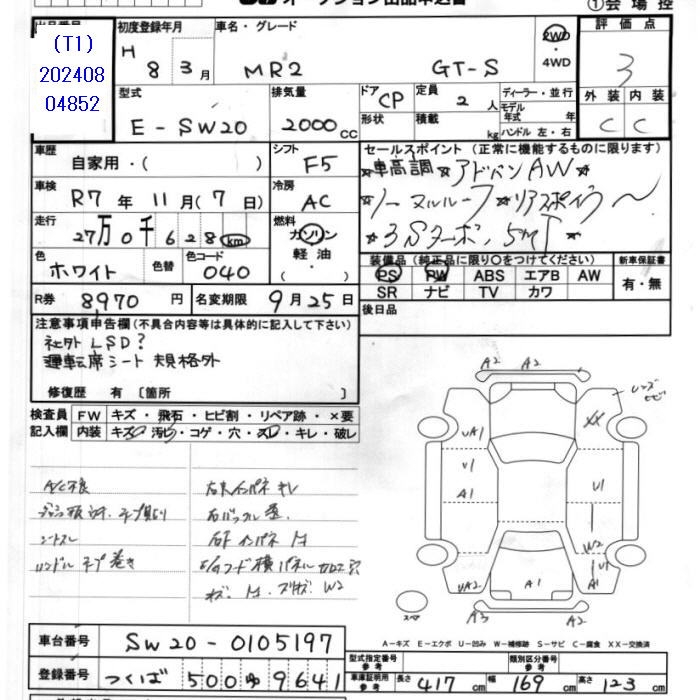 オークション出品申込書
①会場控
出品番号
(T1)
202408
04852
初度登録年月
H 8 3月
車名・グレード
MR2 GT-S
2WD
・
4WD
評価点
3
外装 内装
C C
型式
E-SW20
排気量
2000cc
ドア CP
形状
定員 2人
積載 kg
ディーラー・並行
モデル
年式 年
ハンドル 左・右
車歴
自家用・( )
シフト
F5
セールスポイント (正常に機能するものに限ります)
☆車高調 ☆アドバンAW☆
ノーマルルーフ ☆リアスポイラー
☆3Sターボ、5MT☆
車検
R7年11月(7日)
冷房
AC
走行
27万0千628km
燃料
ガソリン
軽油
色
ホワイト
色替
色コード
040
装備品 (純正品に限り○をつけてください)
PS PW ABS エアB AW
SR ナビ TV カワ
新車保証書
有・無
R券 8970円
名変期限 9月25日
後日品
注意事項申告欄(不具合内容等は具体的に記入して下さい)
社外LSD?
運転席シート 規格外
修復歴 有 〔箇所 〕
検査員
記入欄
FW キズ・飛石・ヒビ割・リペア跡・×要
内装 キズ・汚レ・コゲ・穴・スレ・キレ・破レ
A/C不良
シートスレ
ハンドル テープ巻き
A2 A2
レンズ
ヒビ
UA1 XX
U1
A1
U1
W2
UA2 A1 A1
スペア A3 A2
A−キズ E−エクボ U−凹み W−補修跡 S−サビ C−腐食 XX−交換済
車台番号 SW20-0105197
登録番号 つくば 500 ゆ 9641
型式指定番号
参考
類別区分番号
参考
車庫証明用
参考
長さ 417cm 幅 169cm 高さ 123cm